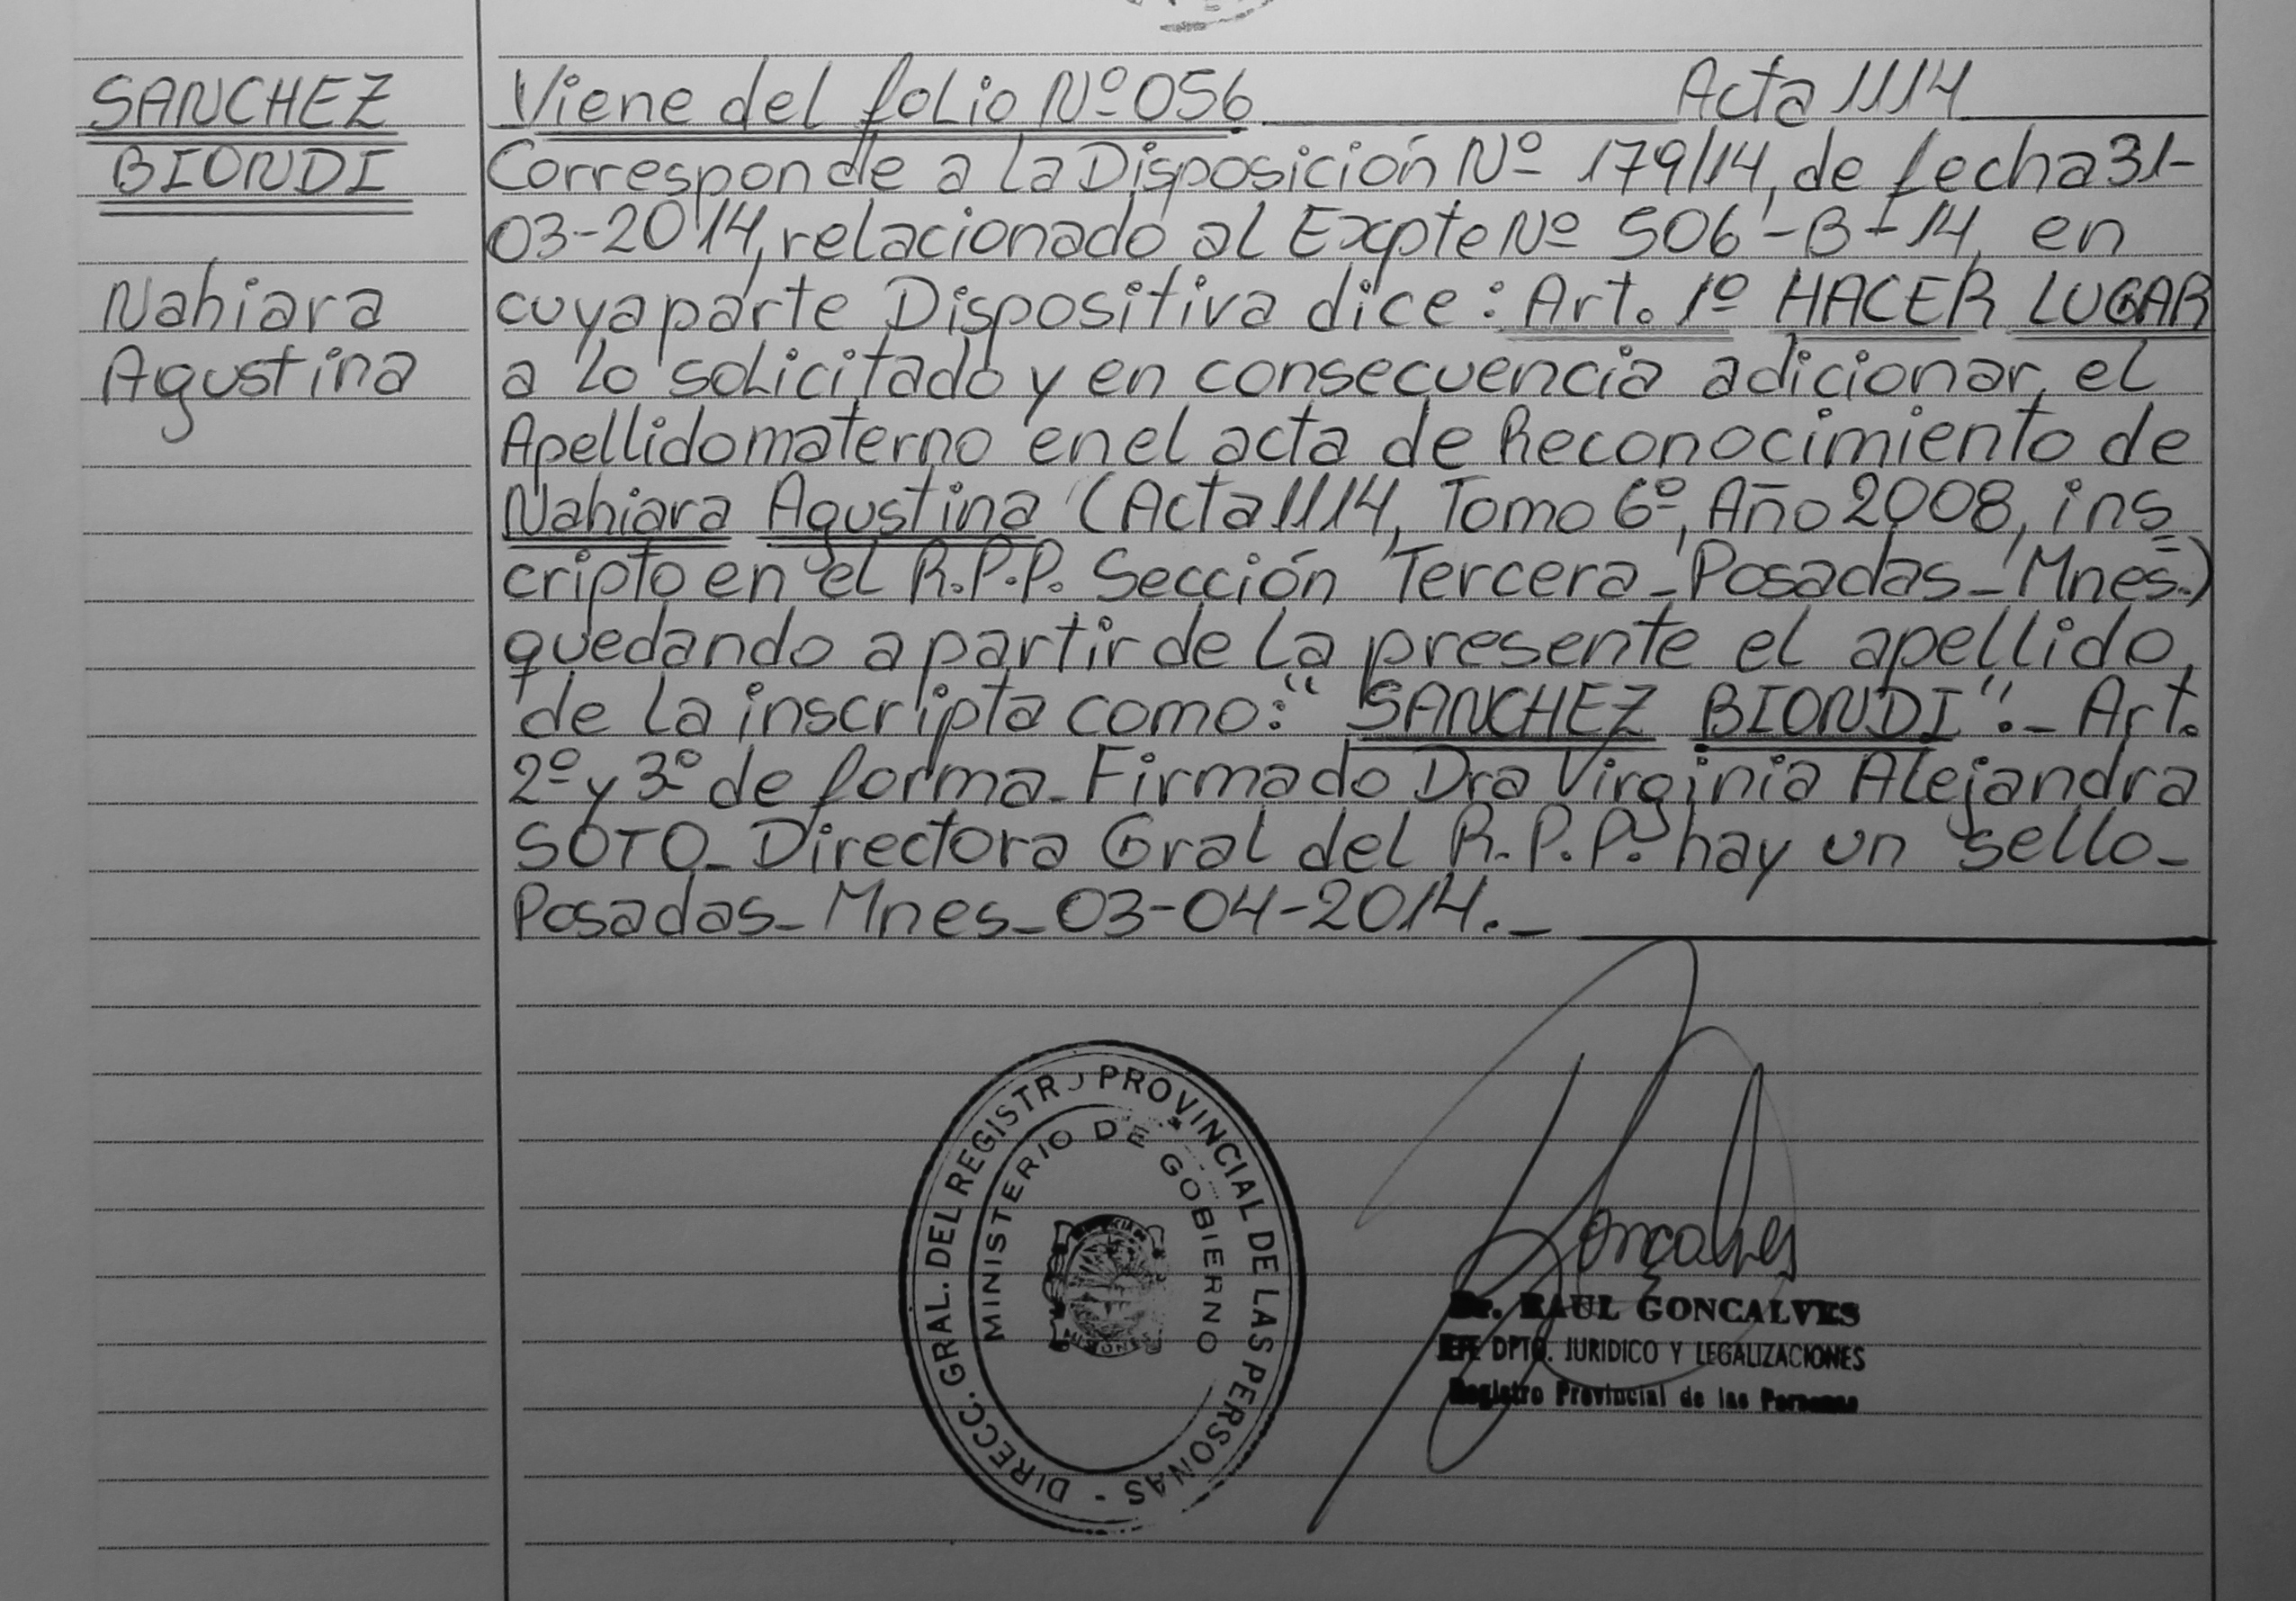 SANCHEZ
BIONDI
Nahiara
Agustina
Viene del folio Nº 056 Acta 1114
Corresponde a la Disposición Nº 179/14, de fecha 31-
03-2014, relacionado al Expte Nº 506-B-14, en
cuya parte Dispositiva dice: Art. 1º HACER LUGAR
a lo solicitado y en consecuencia adicionar, el
Apellido materno en el acta de Reconocimiento de
Nahiara Agustina (Acta 1114, Tomo 6º, Año 2008, ins
cripto en el R.P.P. Sección Tercera - Posadas - Mnes.)
quedando a partir de la presente el apellido,
de la inscripta como: "SANCHEZ BIONDI".- Art.
2º y 3º de forma - Firmado Dra Virginia Alejandra
SOTO - Directora Gral del R.P.P. hay un sello -
Posadas - Mnes - 03-04-2014.-
DIRECC. GRAL. DEL REGISTRO PROVINCIAL DE LAS PERSONAS -
MINISTERIO DE GOBIERNO
MISIONES
Goncalves
Dr. RAUL GONCALVES
JEFE DPTO. JURIDICO Y LEGALIZACIONES
Registro Provincial de las Personas